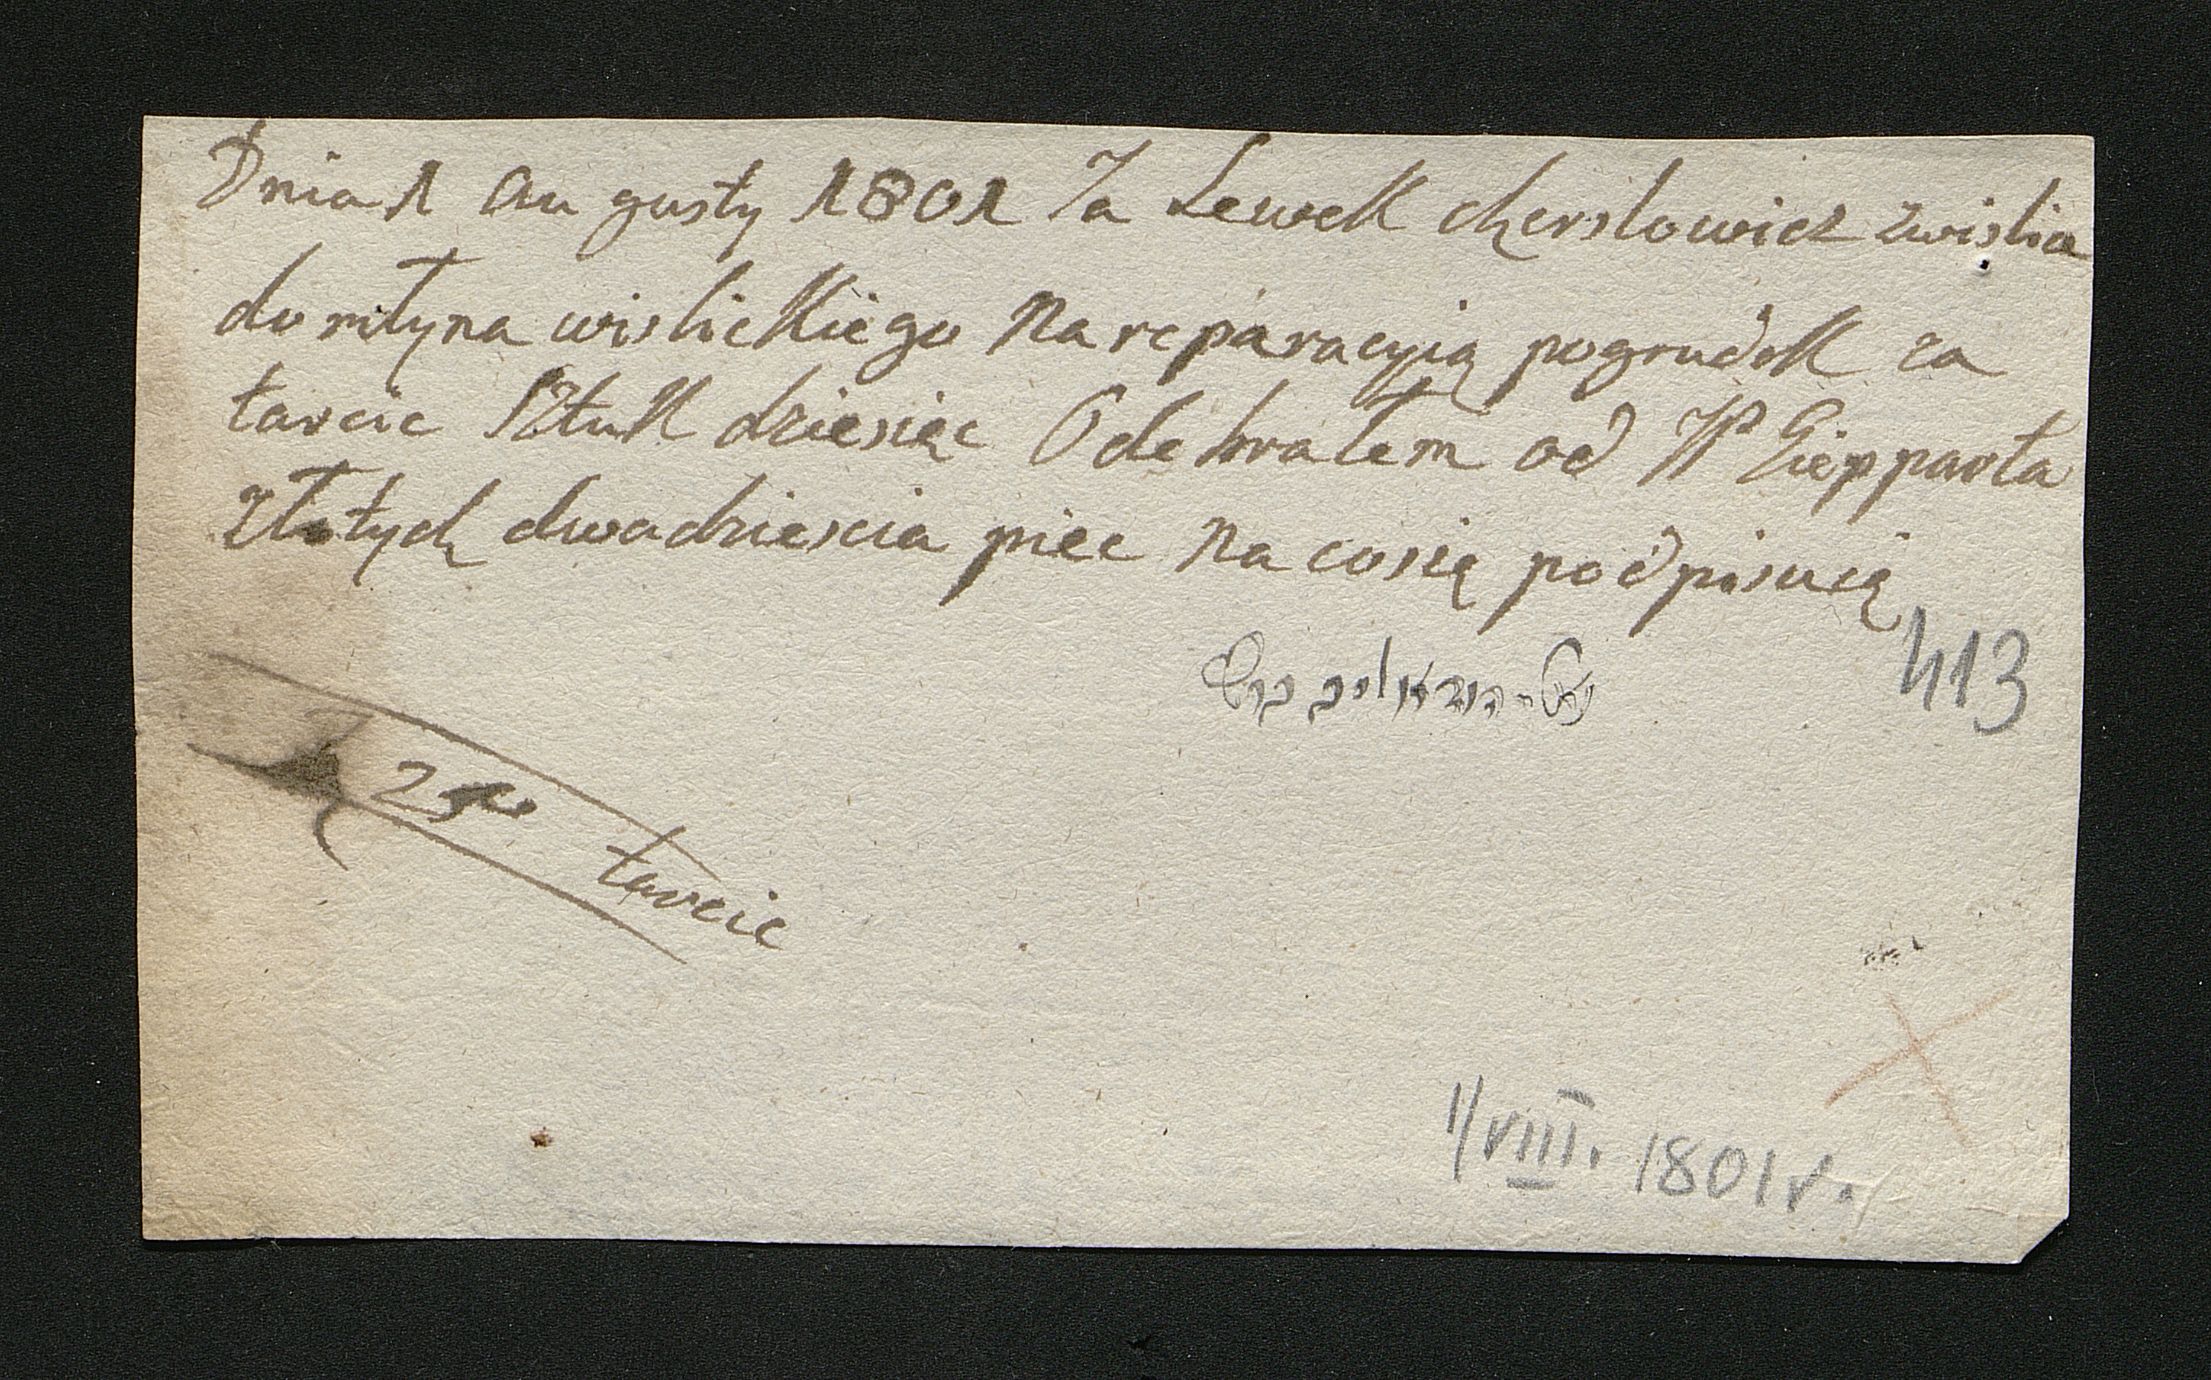 Dnia 1 Augusty 1801 Ja Lewek cherslowicz zwislice
do młyna wislickiego na reparacyią pogrudek za
tarcic sztuk dziesięc Odebrałem od JP Gieppasta
złotych dwadziescia pięc na co się podpisuię
413
tarcic
1/VIII. 1801 r.